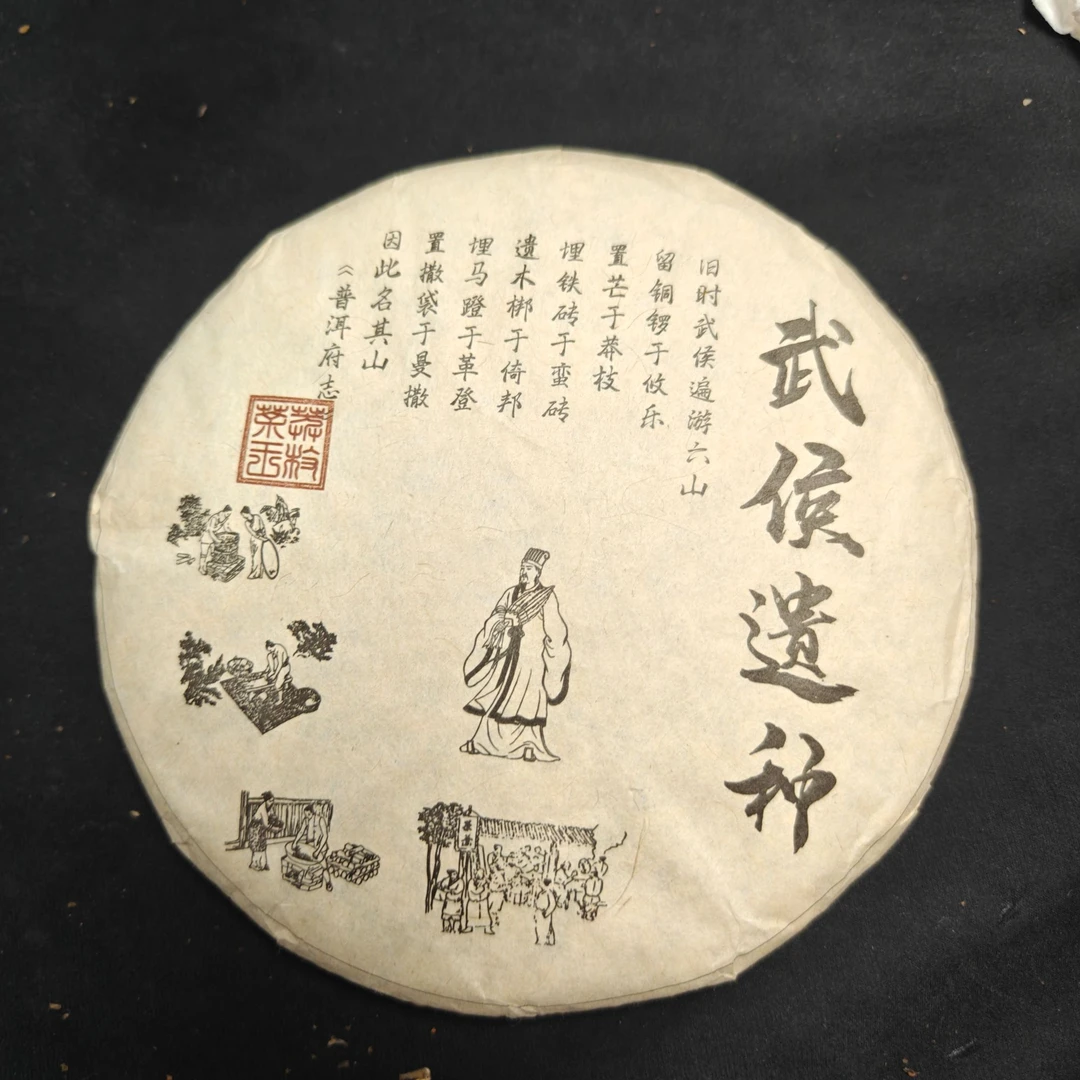 武侯遗种
旧时武侯遍游六山
留铜锣于攸乐
置芒于莽枝
埋铁砖于蛮砖
遗木梆于倚邦
埋马蹬于革登
置撒袋于曼撒
因此名其山
《普洱府志
莽枝
茶王
茶